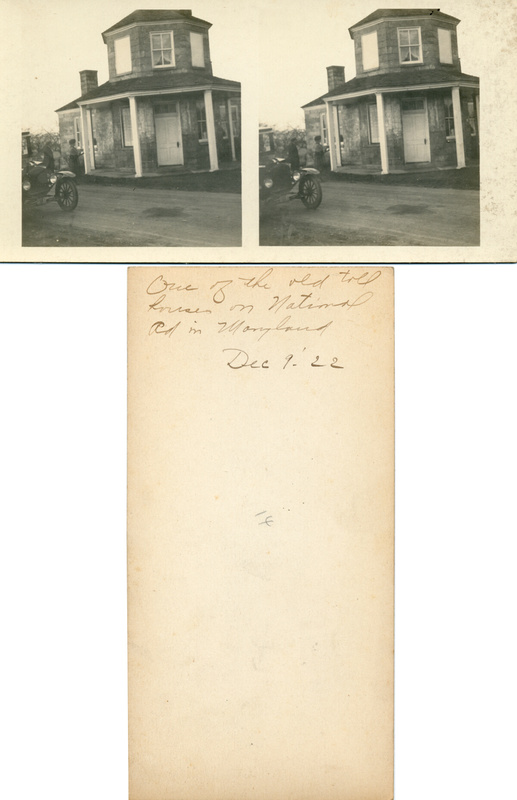 One of the old toll
houses on National
Rd in Maryland
Dec 9. '22